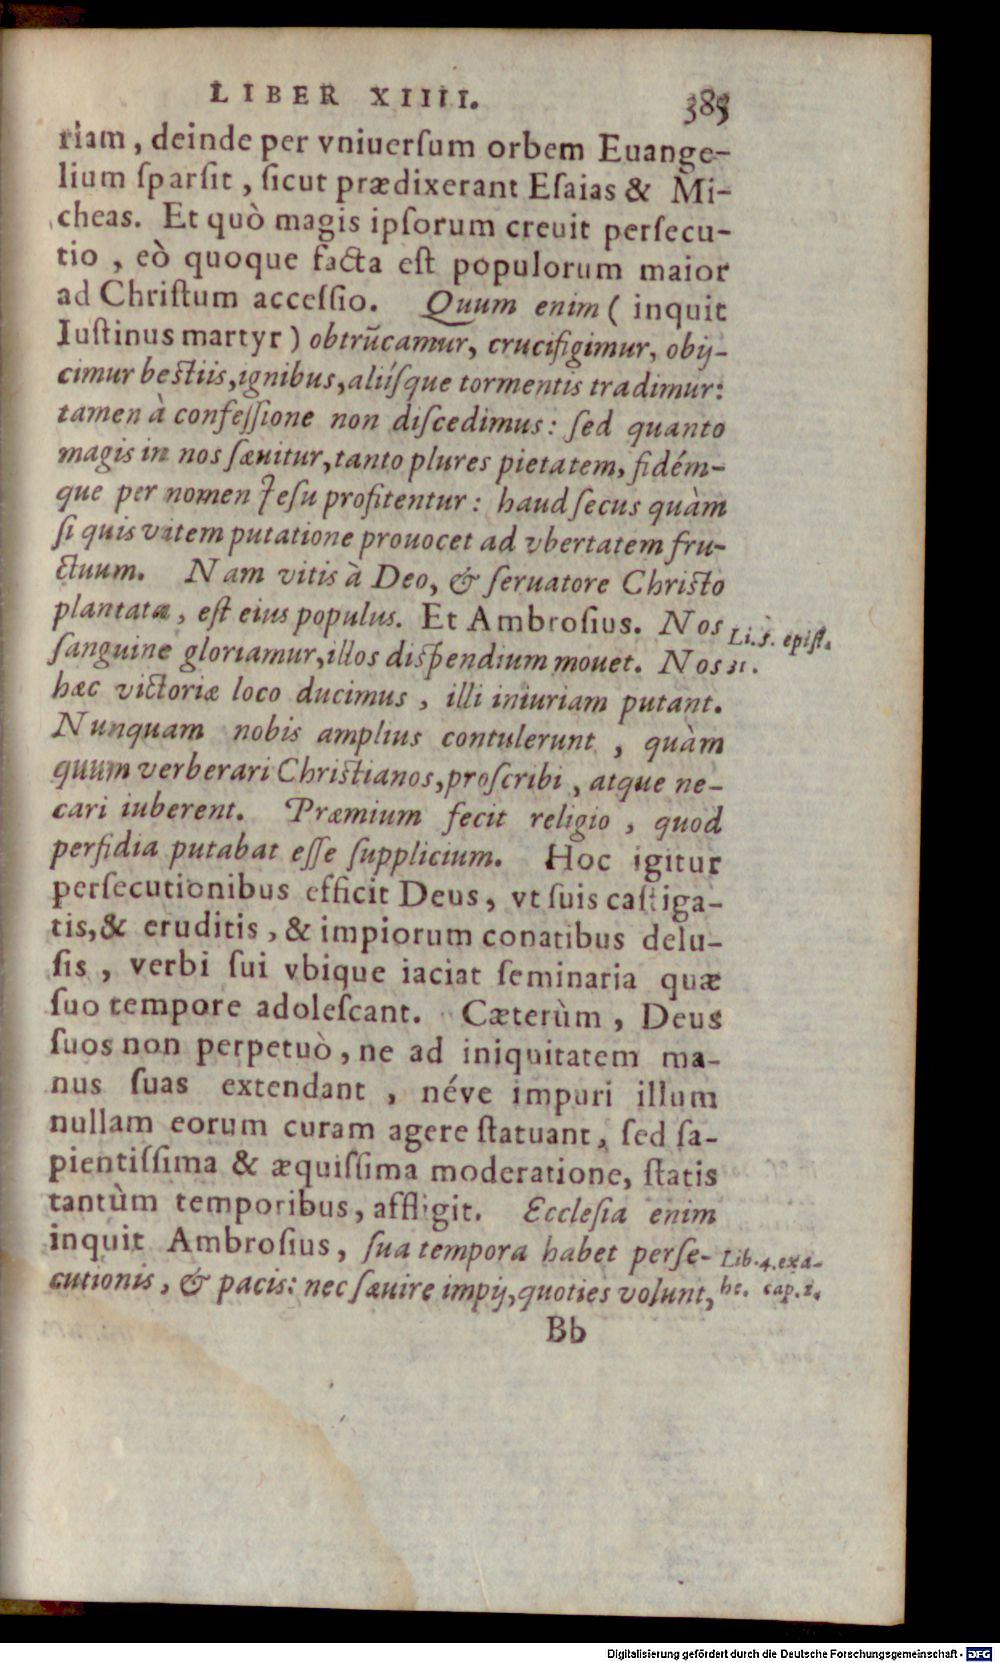 LIBER XIIII. 385
riam, deinde per vniuerſum orbem Euange-
lium ſparſit, ſicut prædixerant Eſaias & Mi-
cheas. Et quò magis ipſorum creuit perſecu-
tio, eò quoque facta eſt populorum maior
ad Chriſtum acceſſio. Quum enim (inquit
Iuſtinus martyr) obtrũcamur, crucifigimur, obij-
cimur beſtiis, ignibus, aliiſque tormentis tradimur:
tamen à confeſſione non diſcedimus: ſed quanto
magis in nos ſæuitur, tanto plures pietatem, fidém-
que per nomen Jeſu profitentur: haud ſecus quàm
ſi quis vitem putatione prouocet ad vbertatem fru-
ctuum. Nam vitis à Deo, & ſeruatore Chriſto
plantata, eſt eius populus. Et Ambroſius. Nos
Li.5. epiſt.
ſanguine gloriamur, illos diſpendium mouet. Nos
31.
hæc victoriæ loco ducimus, illi iniuriam putant.
Nunquam nobis amplius contulerunt, quàm
quum verberari Chriſtianos, proſcribi, atque ne-
cari iuberent. Præmium fecit religio, quod
perfidia putabat eſſe ſupplicium. Hoc igitur
perſecutionibus efficit Deus, vt ſuis caſtiga-
tis, & eruditis, & impiorum conatibus delu-
ſis, verbi ſui vbique iaciat ſeminaria quæ
ſuo tempore adoleſcant. Cæterùm, Deus
ſuos non perpetuò, ne ad iniquitatem ma-
nus ſuas extendant, néve impuri illum
nullam eorum curam agere ſtatuant, ſed ſa-
pientiſſima & æquiſſima moderatione, ſtatis
tantùm temporibus, affligit. Eccleſia enim
inquit Ambroſius, ſua tempora habet perſe-
Lib.4.exa-
cutionis, & pacis: nec ſæuire impij, quoties volunt,
he. cap.2.
Bb
Digitalisierung gefördert durch die Deutsche Forschungsgemeinschaft - DFG